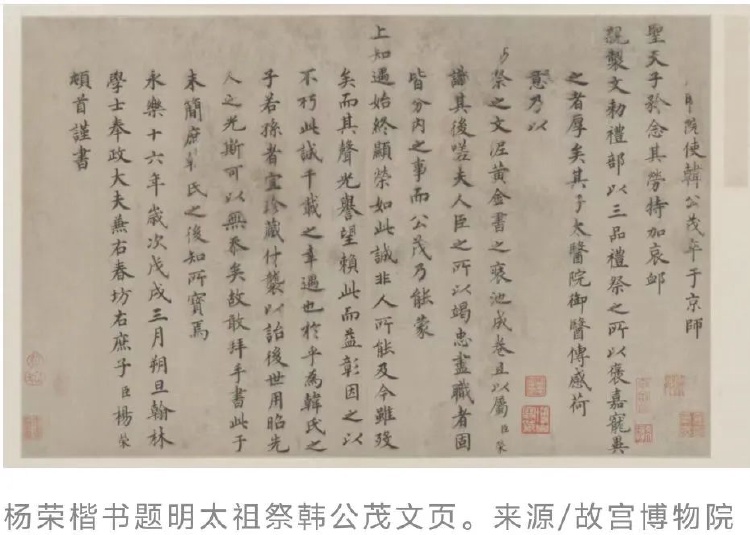 院使韓公茂卒于京師
聖天子於念其勞特加哀卹
親製文勑禮部以三品禮祭之所以褒嘉寵異
之者厚矣其子太醫院御醫傳感荷
意乃以
祭之文泥黄金書之裒池成卷且以屬臣榮
識其後嗟夫人臣之所以竭忠盡職者固
皆分内之事而公茂乃能蒙
上知遇始終顯榮如此誠非人所能及今雖殁
矣而其聲光譽望賴此而益彰因之以
不朽此誠千載之幸遇也於乎為韓氏之
子若孫者宜珍藏什襲以詒後世用昭先
人之光斯可以無忝矣故敢拜手書此于
末簡庶韓氏之後知所寶焉
永樂十六年歲次戊戌三月朔旦翰林
學士奉政大夫兼右春坊右庶子臣楊榮
頓首謹書
杨荣楷书题明太祖祭韩公茂文页。来源/故宫博物院